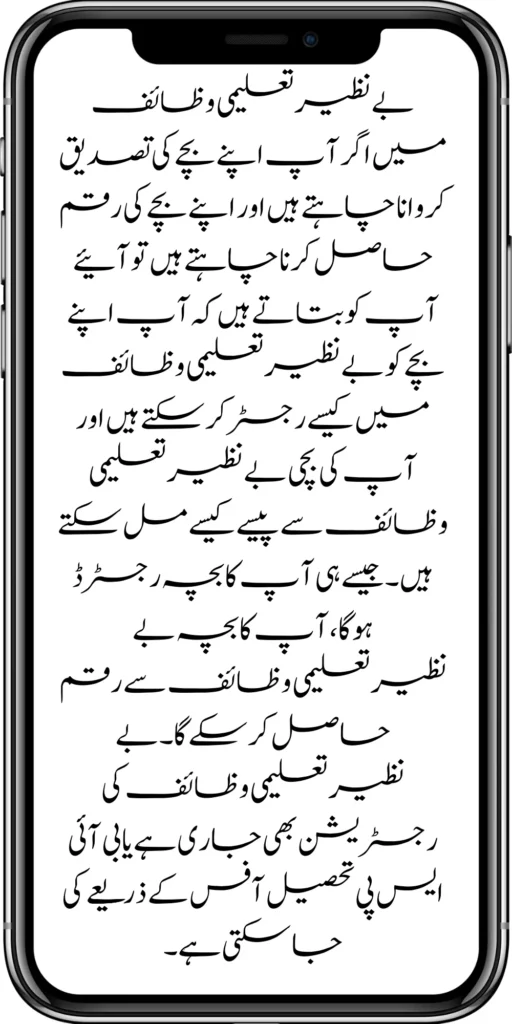 بے نظیر تعلیمی وظائف
میں اگر آپ اپنے بچے کی تصدیق
کروانا چاہتے ہیں اور اپنے بچے کی رقم
حاصل کرنا چاہتے ہیں تو آئیے
آپ کو بتاتے ہیں کہ آپ اپنے
بچے کو بے نظیر تعلیمی وظائف
میں کیسے رجسٹر کر سکتے ہیں اور
آپ کی بچی بے نظیر تعلیمی
وظائف سے پیسے کیسے مل سکتے
ہیں۔ جیسے ہی آپ کا بچہ رجسٹرڈ
ہو گا، آپ کا بچہ بے
نظیر تعلیمی وظائف سے رقم
حاصل کر سکے گا۔ بے
نظیر تعلیمی وظائف کی
رجسٹریشن بھی جاری ہے یا بی آئی
ایس پی تحصیل آفس کے ذریعے کی
جا سکتی ہے۔